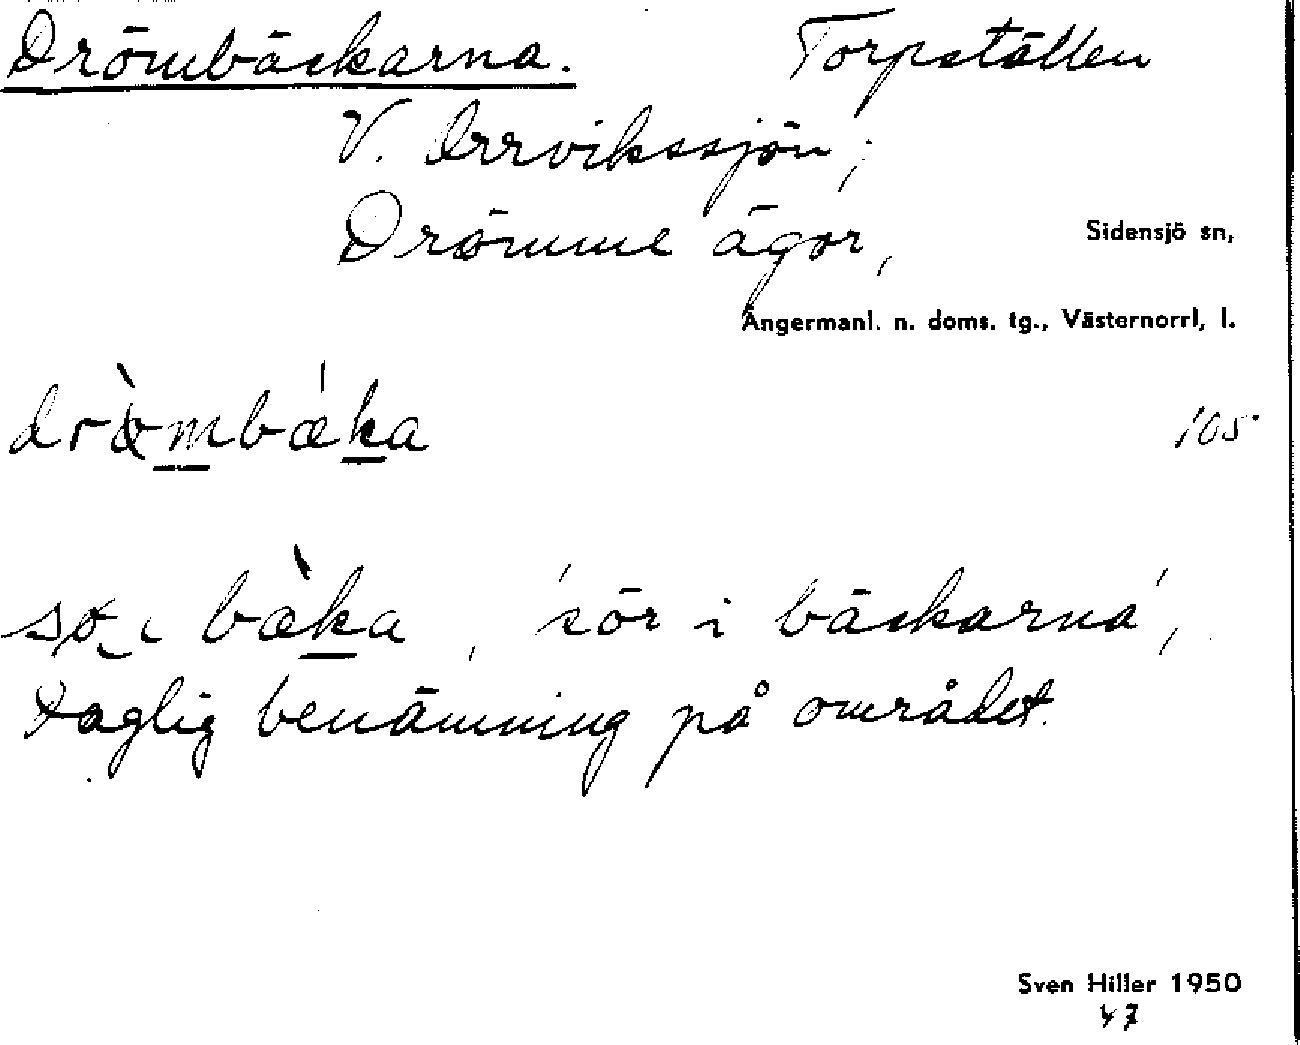 Drömbäckarna. Torpställen
V. Orrvikssjön,
Drömme ägor, Sidensjö sn,
Ångermanl. n. doms. tg., Västernorrl. l.
drø̀mbǽka 105
sø i bæ̀ka, 'sör i bäckarna',
daglig benämning på området.
Sven Hiller 1950
47